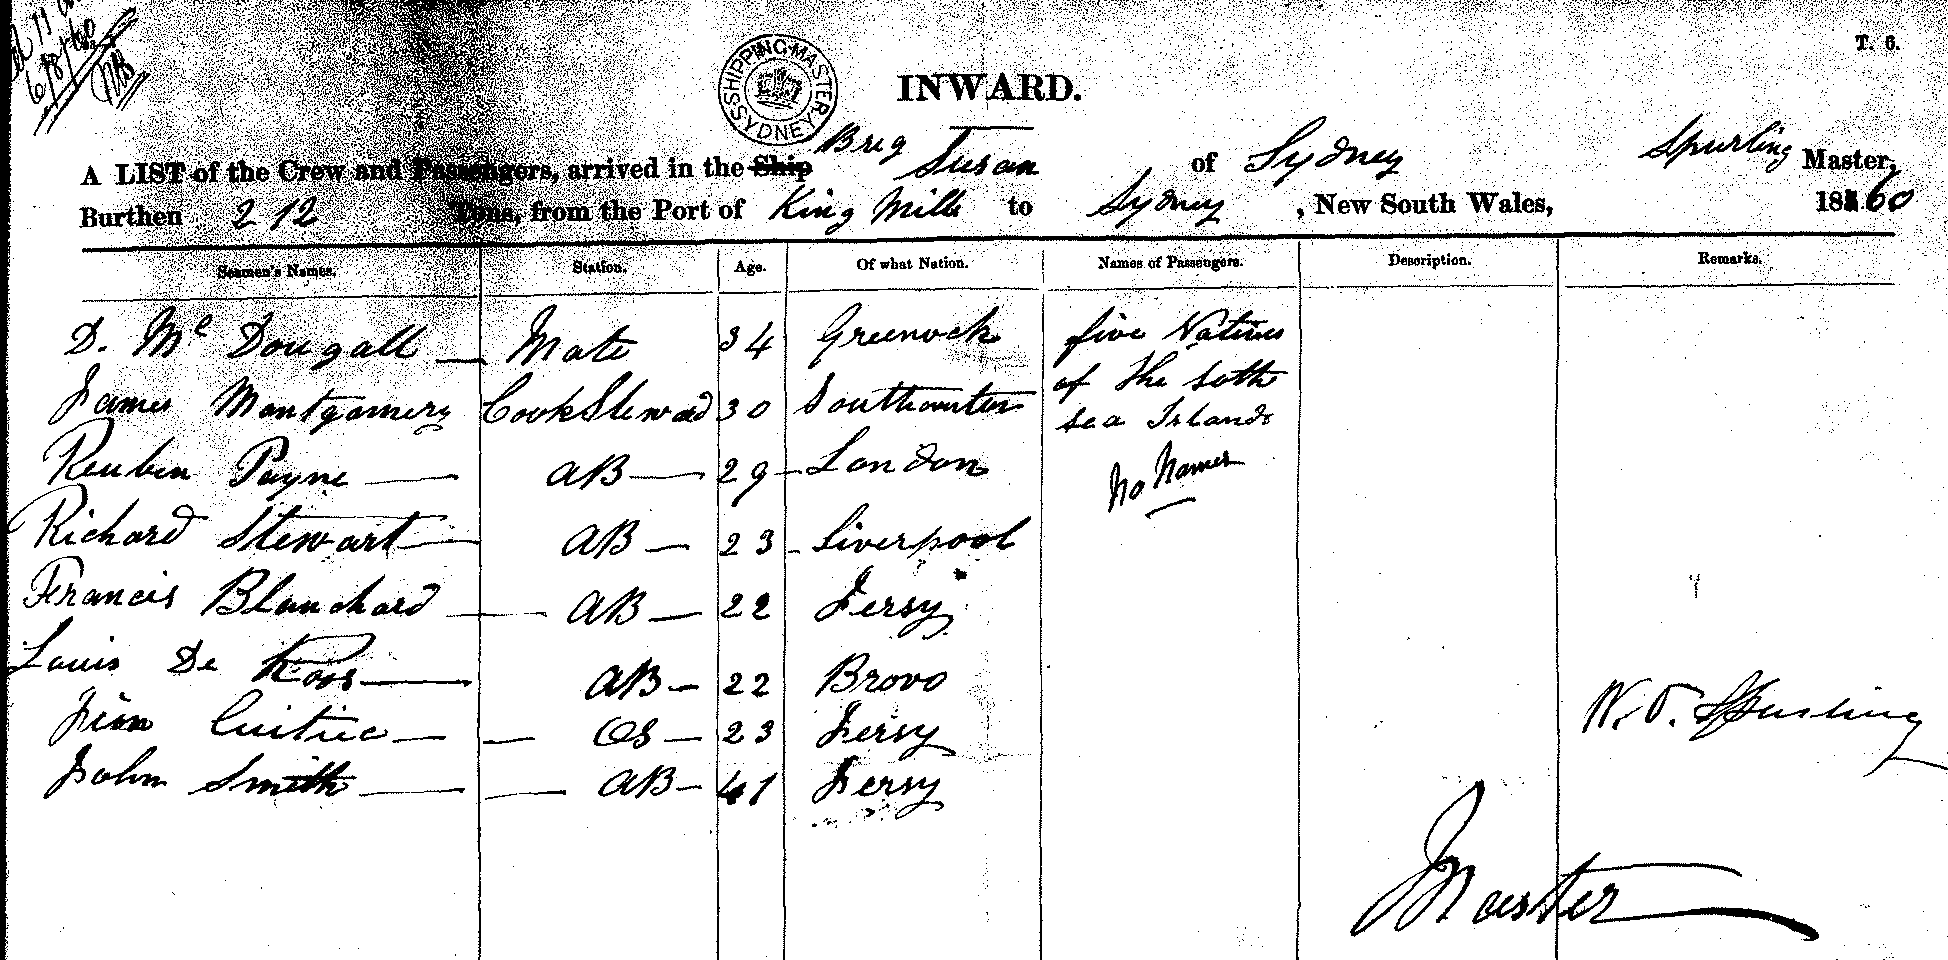 6/8/60
T. 6.
SHIPPING MASTER SYDNEY
INWARD.
A LIST of the Crew and Passengers, arrived in the Ship Brig Susan of Sydney Spurling Master,
Burthen 212 Tons, from the Port of King Mills to Sydney, New South Wales, 1860
Seamen's Names. Station. Age. Of what Nation. Names of Passengers. Description. Remarks.
D. Mc Dougall — Mate 34 Greenock five Natives
James Montgomery Cook Steward 30 Southamton of the Soth
sea Islands
Reuben Payne — AB — 29 — London No Names
Richard Stewart — AB — 23 - Liverpool
Francis Blanchard — AB — 22 Jersy
Louis De Roos — AB — 22 Brovo
W. O. Spurling
— OS — 23 Jersy
John Smith — AB — 41 Jersy
Master